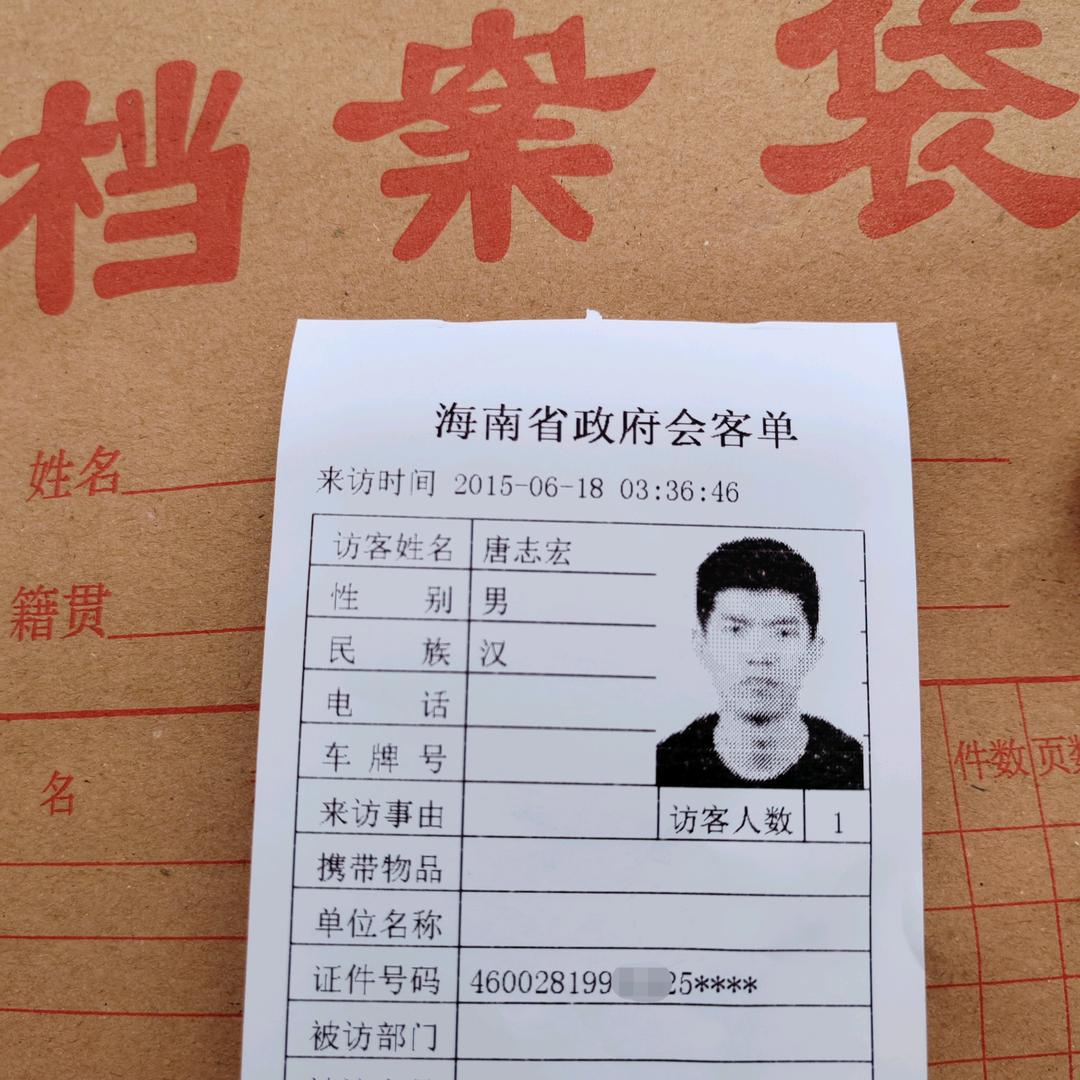 档案袋
海南省政府会客单
来访时间 2015-06-18 03:36:46
姓名
访客姓名 唐志宏
性别 男
籍贯
民族 汉
电话
车牌号
件数 页数
名
来访事由 访客人数 1
携带物品
单位名称
证件号码 460028199 25****
被访部门